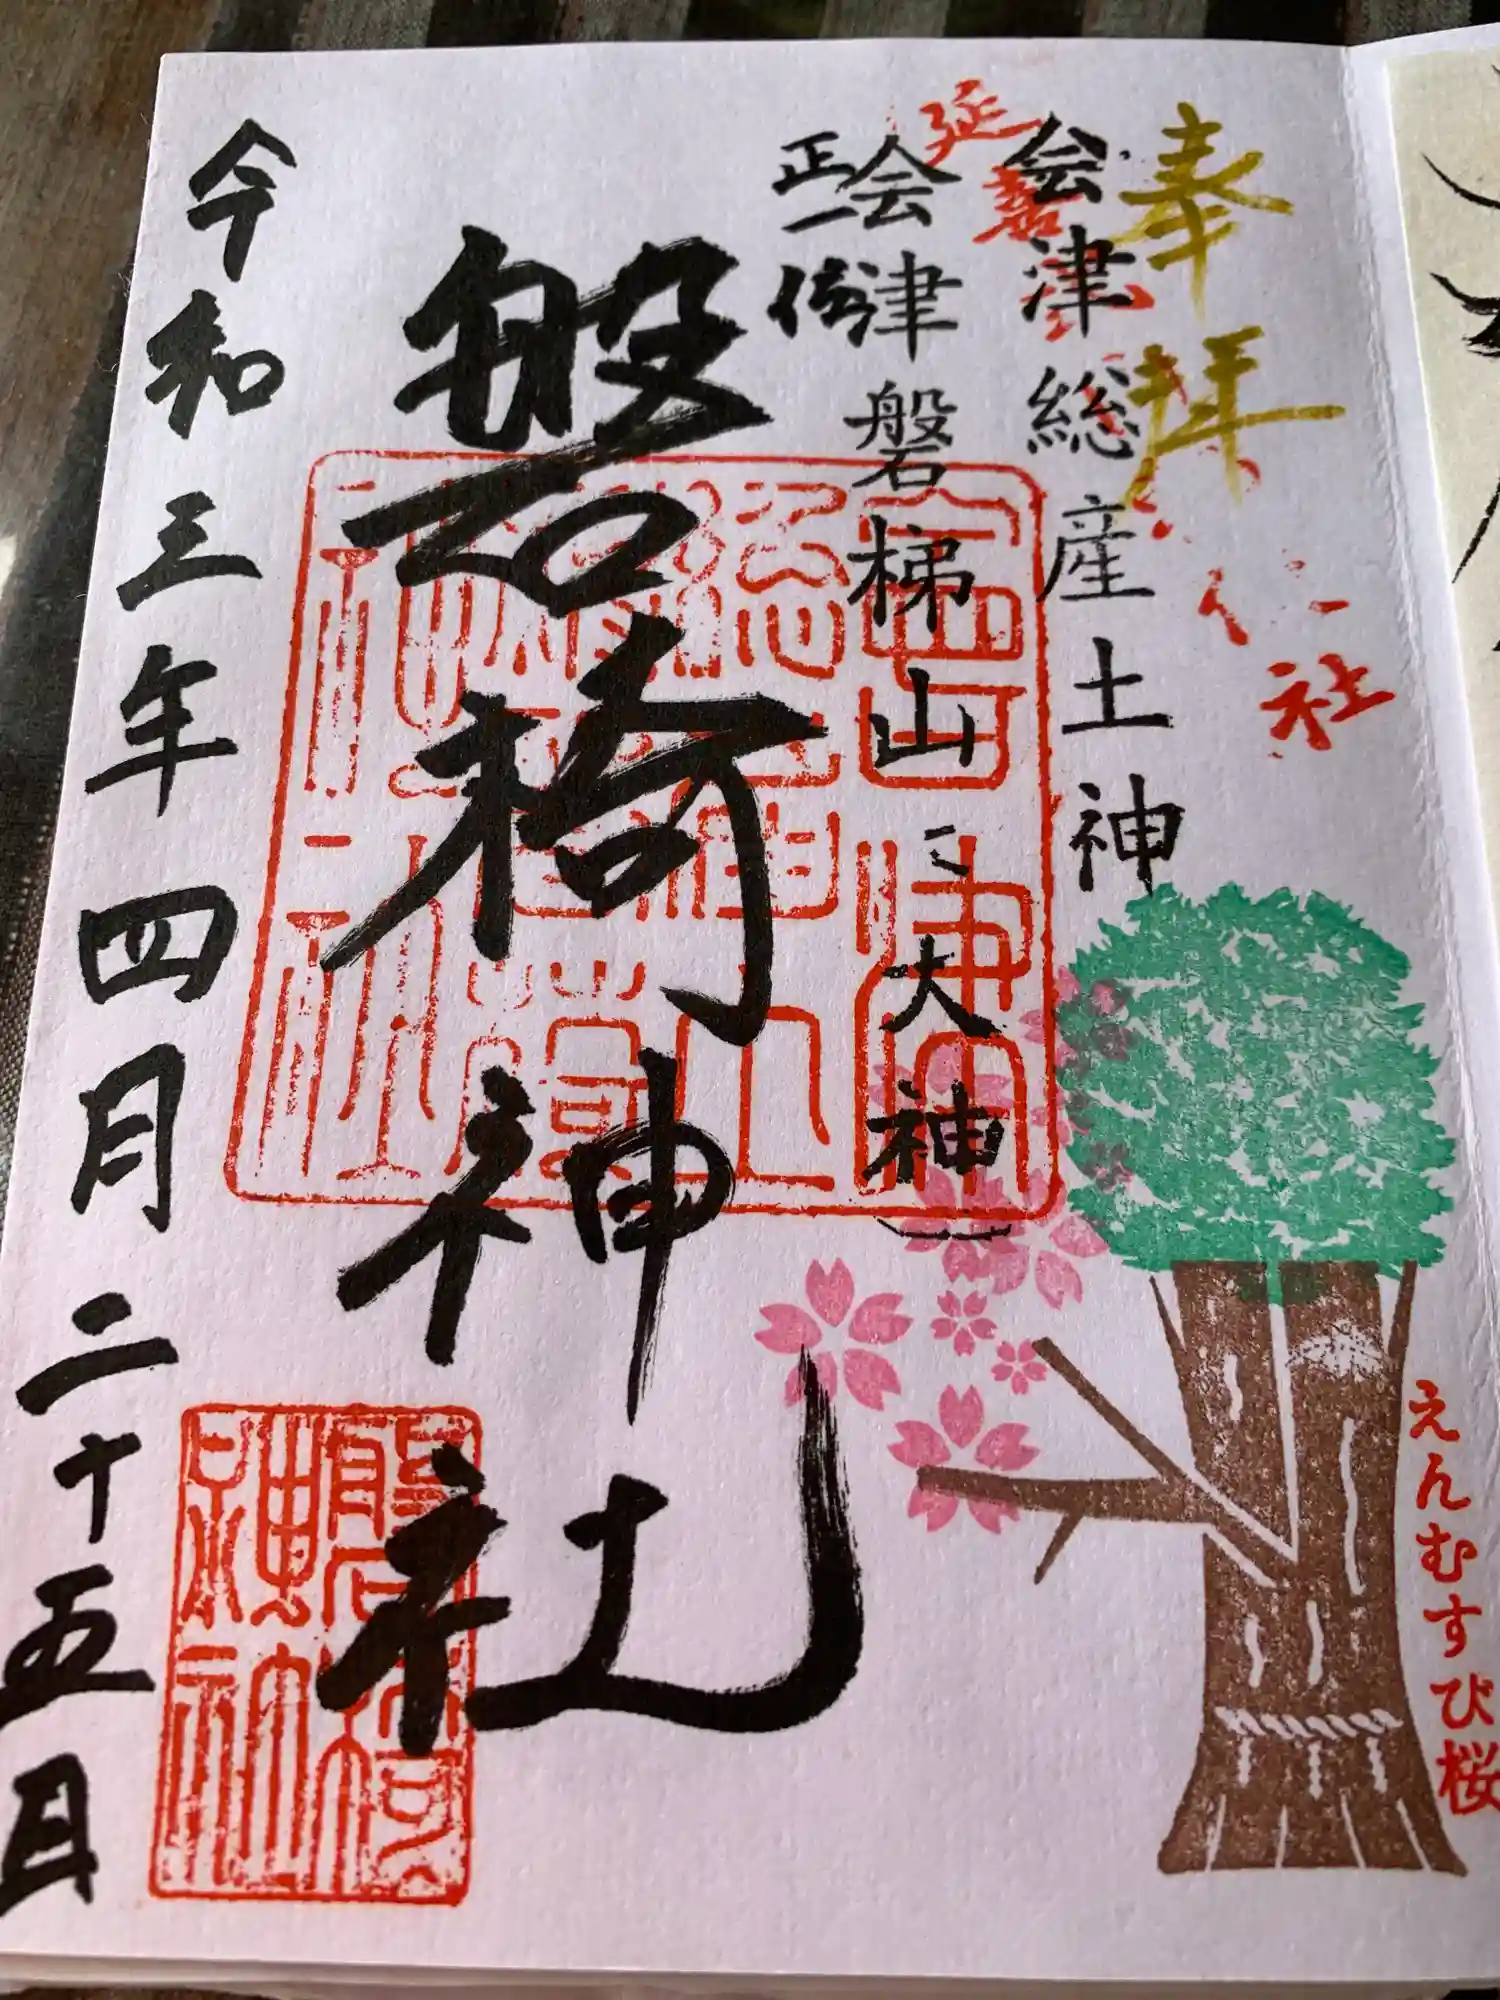 奉拝
延喜式内社
会津総産土神
会津磐梯山大神
正一位
磐椅神社
令和三年四月二十五日
えんむすび桜